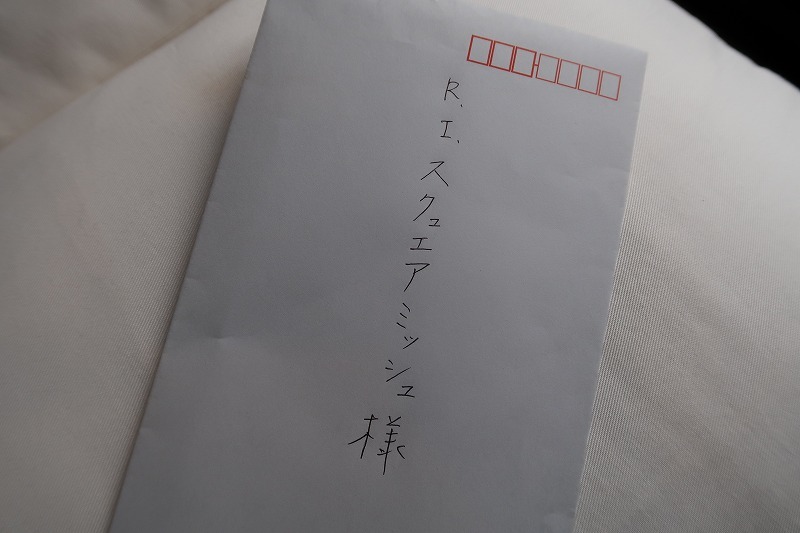 R.I.スクュエアミッシュ様